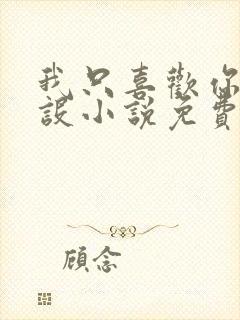 我只喜歡你
設小說免費
顧念